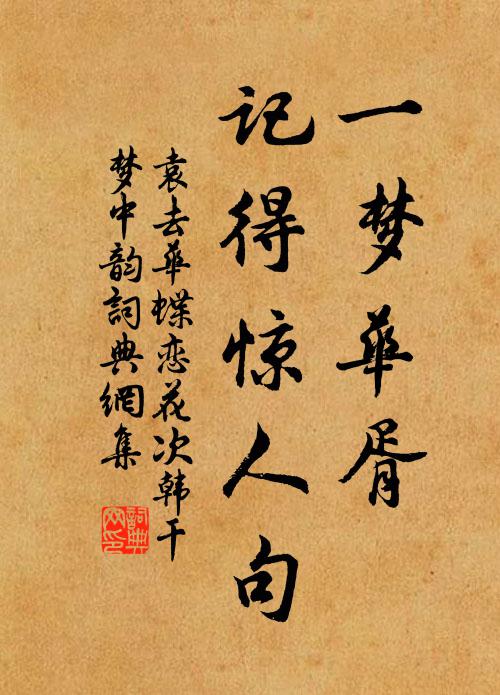 一梦华胥
记得惊人句
袁去华蝶恋花次韩干
梦中韵詞典網集
詞典网印